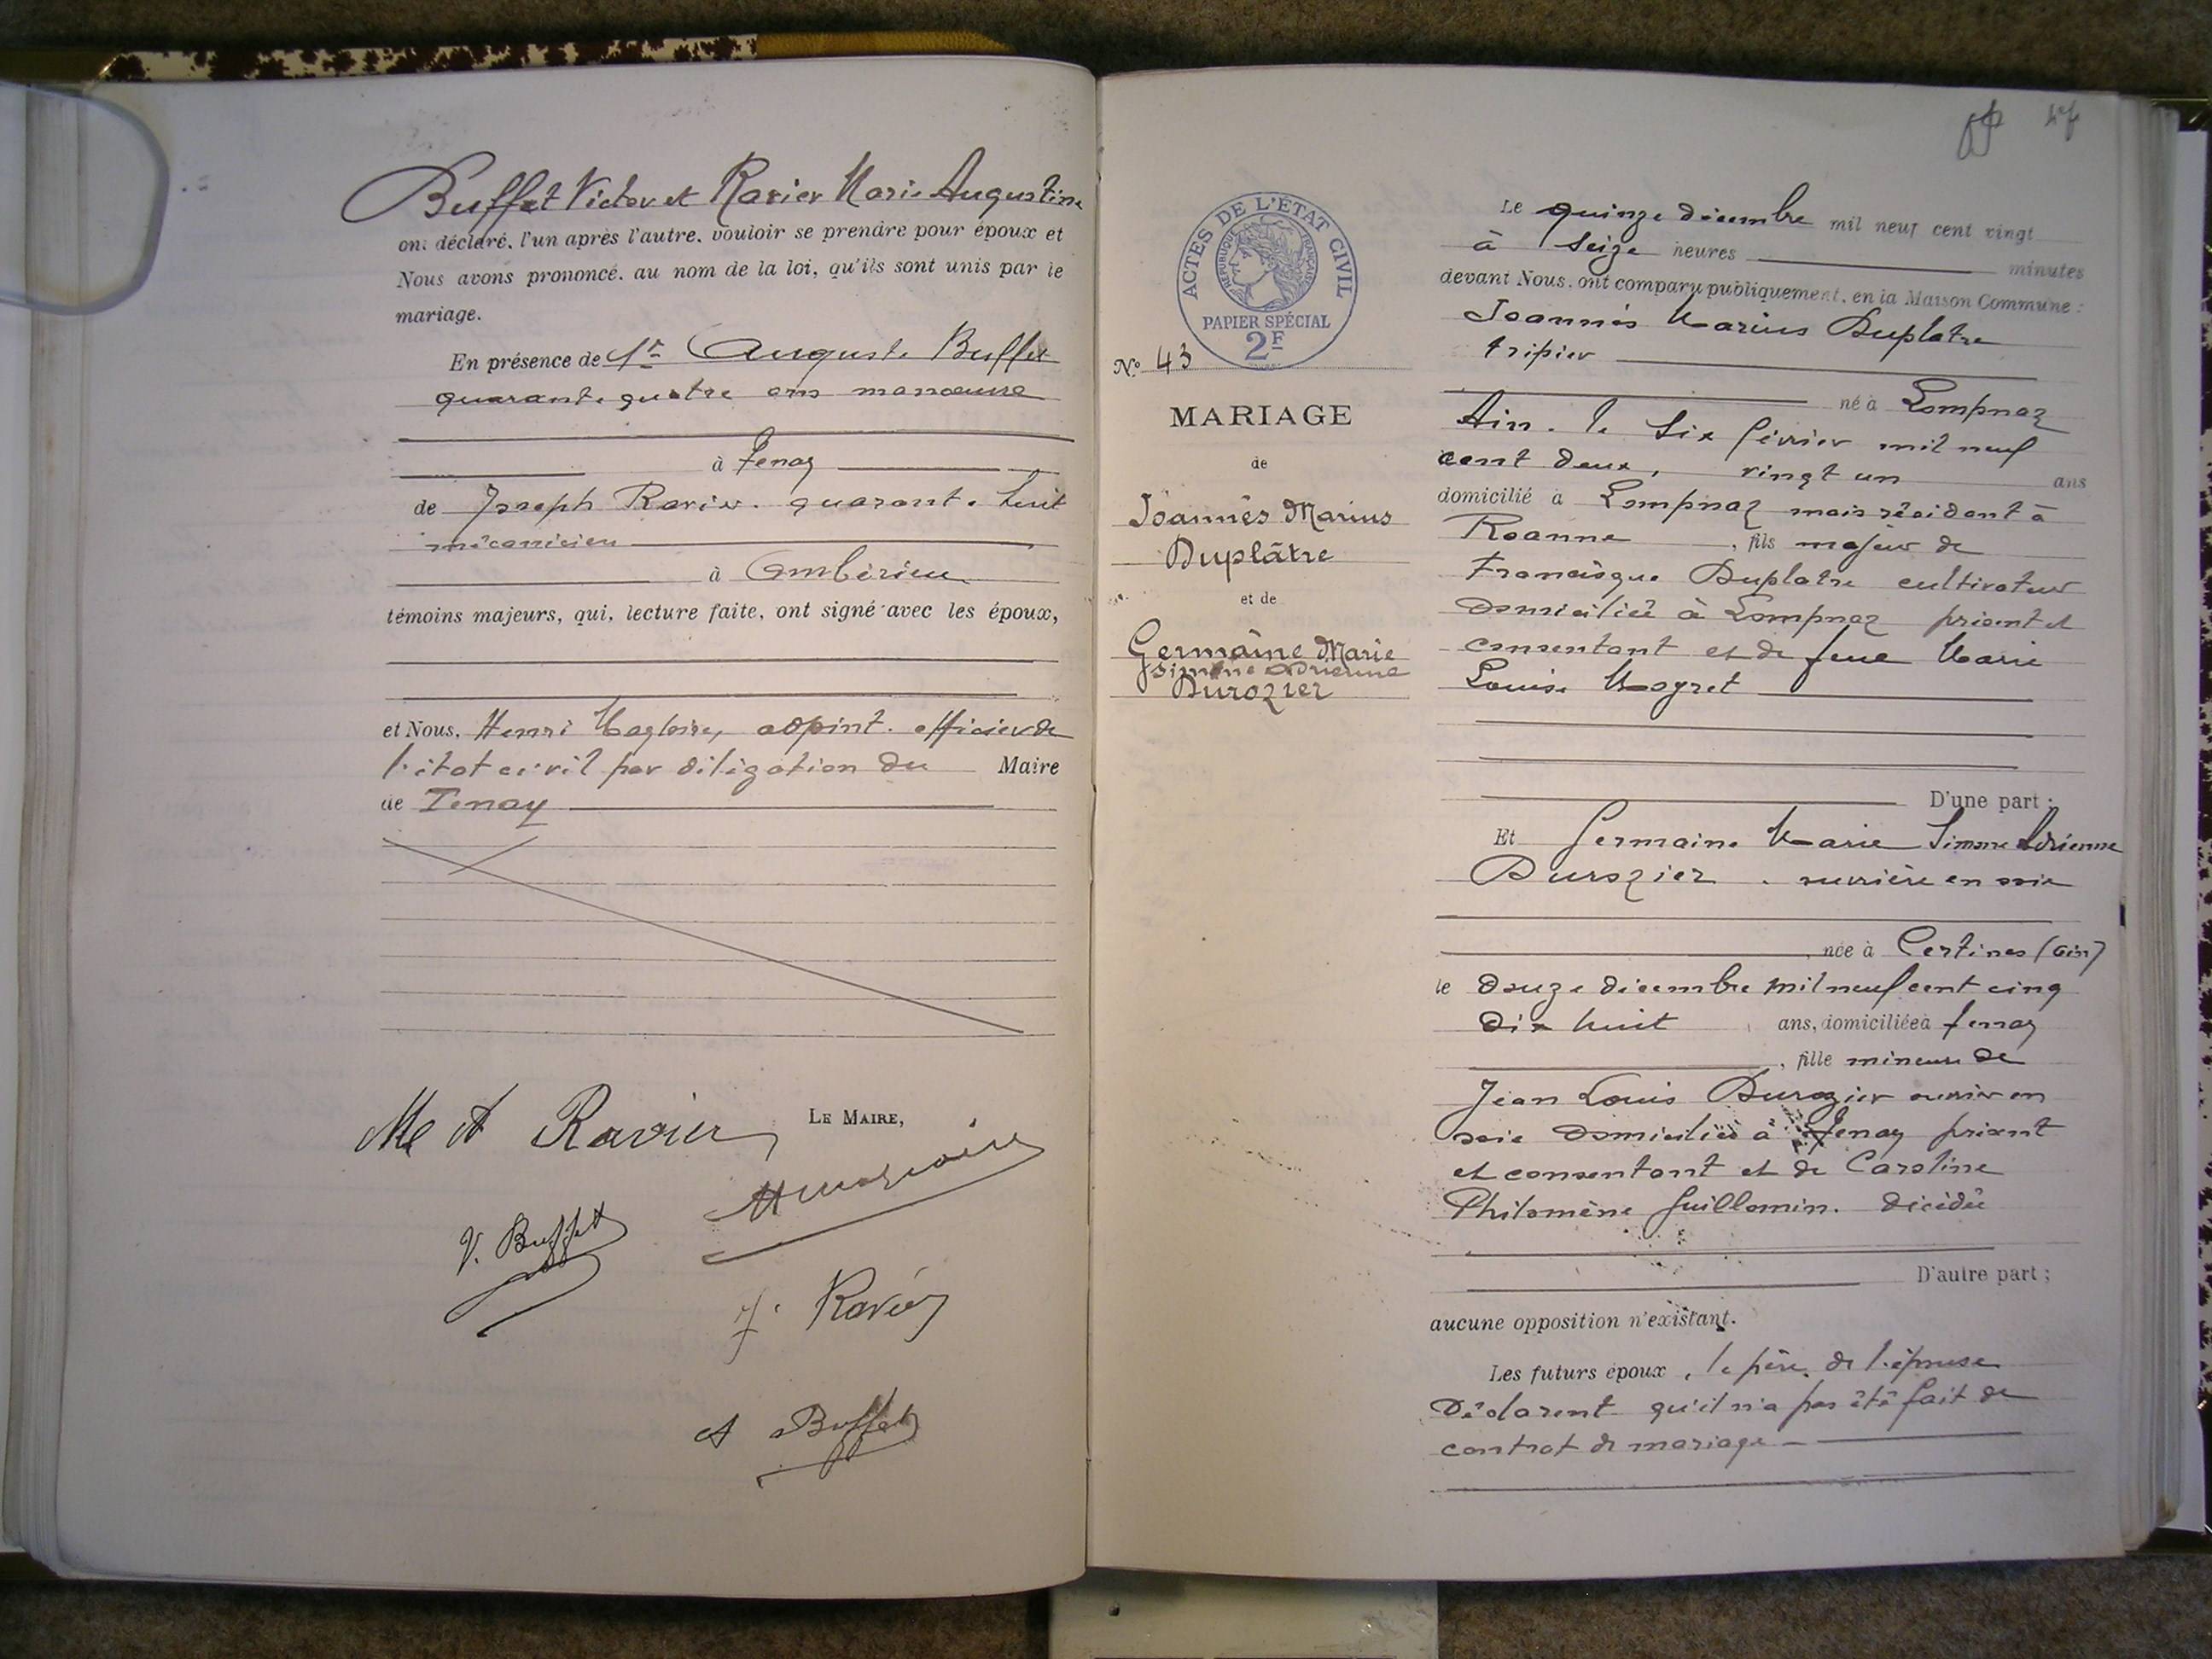 Buffet Victor et Ravier Marie Augustine
ont déclaré, l'un après l'autre, vouloir se prendre pour époux et
Nous avons prononcé, au nom de la loi, qu'ils sont unis par le
mariage.
En présence de Auguste Buffet
quarante quatre ans manœuvre
à Tenay
de Joseph Ravier. quarante huit
mécanicien
à Ambérieu
témoins majeurs, qui, lecture faite, ont signé avec les époux,
et Nous, Henri Magloire, adjoint. officier de
l'état civil par délégation du Maire
de Tenay
LE MAIRE,
M A Ravier
V. Buffet
J. Ravier
A Buffet
47
ACTES DE L'ÉTAT CIVIL
RÉPUBLIQUE FRANÇAISE
PAPIER SPÉCIAL
2F
No 43
MARIAGE
de
Joannès Marius
Duplâtre
et de
Germaine Marie
Simone Adrienne
Durozier
Le quinze décembre mil neuf cent vingt
à seize heures minutes
devant Nous, ont comparu publiquement, en la Maison Commune :
Joannès Marius Duplatre
tripier
né à Lompnaz
Ain. le six février mil neuf
cent deux, vingt un ans
domicilié à Lompnaz mais résidant à
Roanne, fils majeur de
Francisque Duplatre cultivateur
domicilié à Lompnaz présent et
consentant et de feue Marie
Louise Mogret
D'une part ;
Et Germaine Marie Simone Adrienne
Durozier. ouvrière en soie
, née à Certines (Ain)
le douze décembre mil neuf cent cinq
dix huit ans, domiciliée à Tenay
, fille mineure de
Jean Louis Durozier ouvrier en
soie domicilié à Tenay présent
et consentant et de Caroline
Philomène Guillemin. décédée
D'autre part ;
aucune opposition n'existant.
Les futurs époux, le père de l'épouse
déclarent qu'il n'a pas été fait de
contrat de mariage